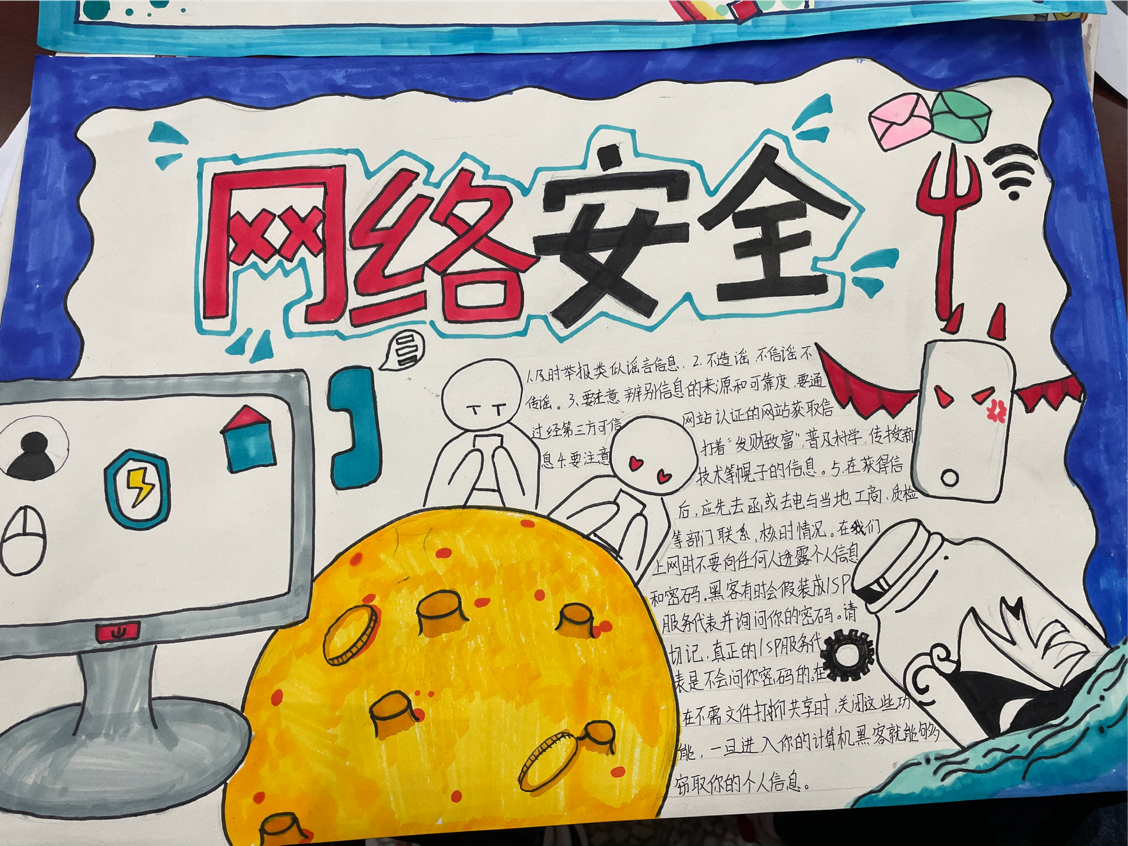 网络安全
1.及时举报类似谣言信息.2.不造谣 不信谣 不
传谣。3.要注意 辨别信息的来源和可靠度,要通
过经第三方可信 网站认证的网站获取信
息4.要注意 打着"发财致富",普及科学,传授新
技术等幌子的信息。5.在获得信
后,应先去函或去电与当地工商,质检
等部门联系,核时情况。在我们
上网时不要向任何人透露个人信息
和密码.黑客有时会假装成ISP
服务代表并询问你的密码。请
切记,真正的ISP服务代
表是不会问你密码的.在
在不需文件打抑共享时,关闭这些功
能,一旦进入你的计算机黑客就能够
窃取你的个人信息。